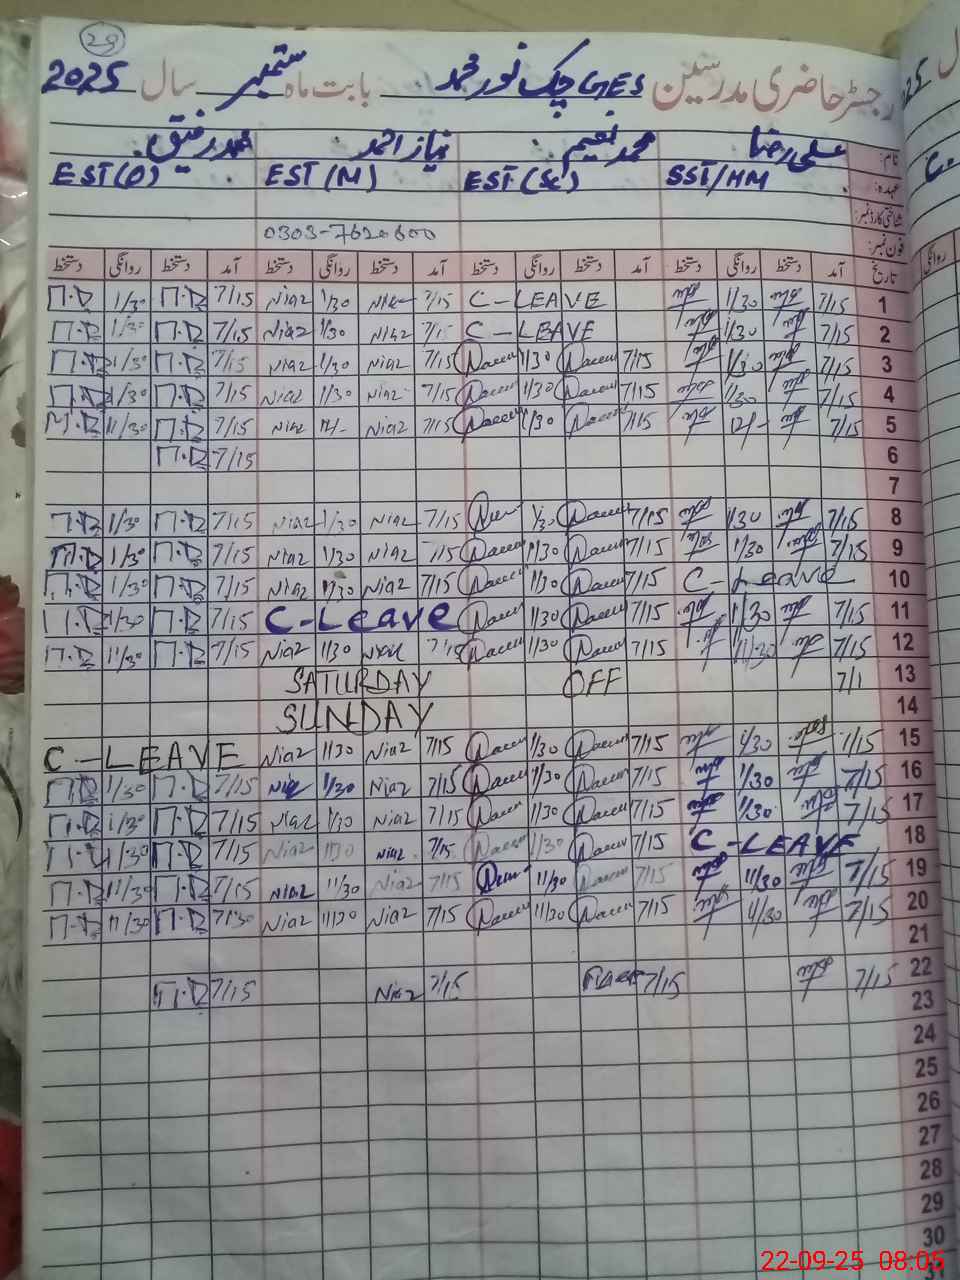 29
رجسٹر حاضری مدرسین GES چک نور محمد بابت ماہ ستمبر سال 2025
نام: علی رضا محمد نعیم نیاز احمد محمد رفیق
عہدہ: SST/HM EST (Sc) EST (M) EST(O)
شناختی کارڈ نمبر:
فون نمبر: 0303-7620600
تاریخ آمد دستخط روانگی دستخط آمد دستخط روانگی دستخط آمد دستخط روانگی دستخط آمد دستخط روانگی دستخط
M.R 1/30 M.R 7/15 Niaz 1/30 Niaz 7/15 C-LEAVE 1/30 7/15 1
M.R 1/30 M.R 7/15 Niaz 1/30 Niaz 7/15 C-LEAVE 1/30 7/15 2
M.R 1/30 M.R 7/15 Niaz 1/30 Niaz 7/15 Naeem 1/30 Naeem 7/15 1/30 7/15 3
M.R 1/30 M.R 7/15 Niaz 1/30 Niaz 7/15 Naeem 1/30 Naeem 7/15 1/30 7/15 4
M.R 11/30 M.R 7/15 Niaz 12/- Niaz 7/15 Naeem 1/30 Naeem 7/15 12/- 7/15 5
M.R 7/15 6
7
M.R 1/30 M.R 7/15 Niaz 1/30 Niaz 7/15 Naeem 1/30 Naeem 7/15 1/30 7/15 8
M.R 1/30 M.R 7/15 Niaz 1/30 Niaz 7/15 Naeem 1/30 Naeem 7/15 1/30 7/15 9
M.R 1/30 M.R 7/15 Niaz 1/30 Niaz 7/15 Naeem 1/30 Naeem 7/15 C-Leave 10
M.R 1/30 M.R 7/15 C-Leave Naeem 1/30 Naeem 7/15 1/30 7/15 11
M.R 11/30 M.R 7/15 Niaz 11/30 Niaz 7/15 Naeem 1/30 Naeem 7/15 11/30 7/15 12
SATURDAY OFF 7/1 13
SUNDAY 14
C-LEAVE Niaz 1/30 Niaz 7/15 Naeem 1/30 Naeem 7/15 1/30 7/15 15
M.R 1/30 M.R 7/15 Niaz 1/30 Niaz 7/15 Naeem 1/30 Naeem 7/15 1/30 7/15 16
M.R 1/30 M.R 7/15 Niaz 1/30 Niaz 7/15 Naeem 1/30 Naeem 7/15 1/30 7/15 17
M.R 1/30 M.R 7/15 Niaz 1/30 Niaz 7/15 Naeem 1/30 Naeem 7/15 C-LEAVE 18
M.R 11/30 M.R 7/15 Niaz 11/30 Niaz 7/15 Naeem 11/30 Naeem 7/15 11/30 7/15 19
M.R 11/30 M.R 7/30 Niaz 11/30 Niaz 7/15 Naeem 11/30 Naeem 7/15 11/30 7/15 20
21
M.R 7/15 Niaz 7/15 Naeem 7/15 7/15 22
23
24
25
26
27
28
29
30
31
22-09-25 08:05